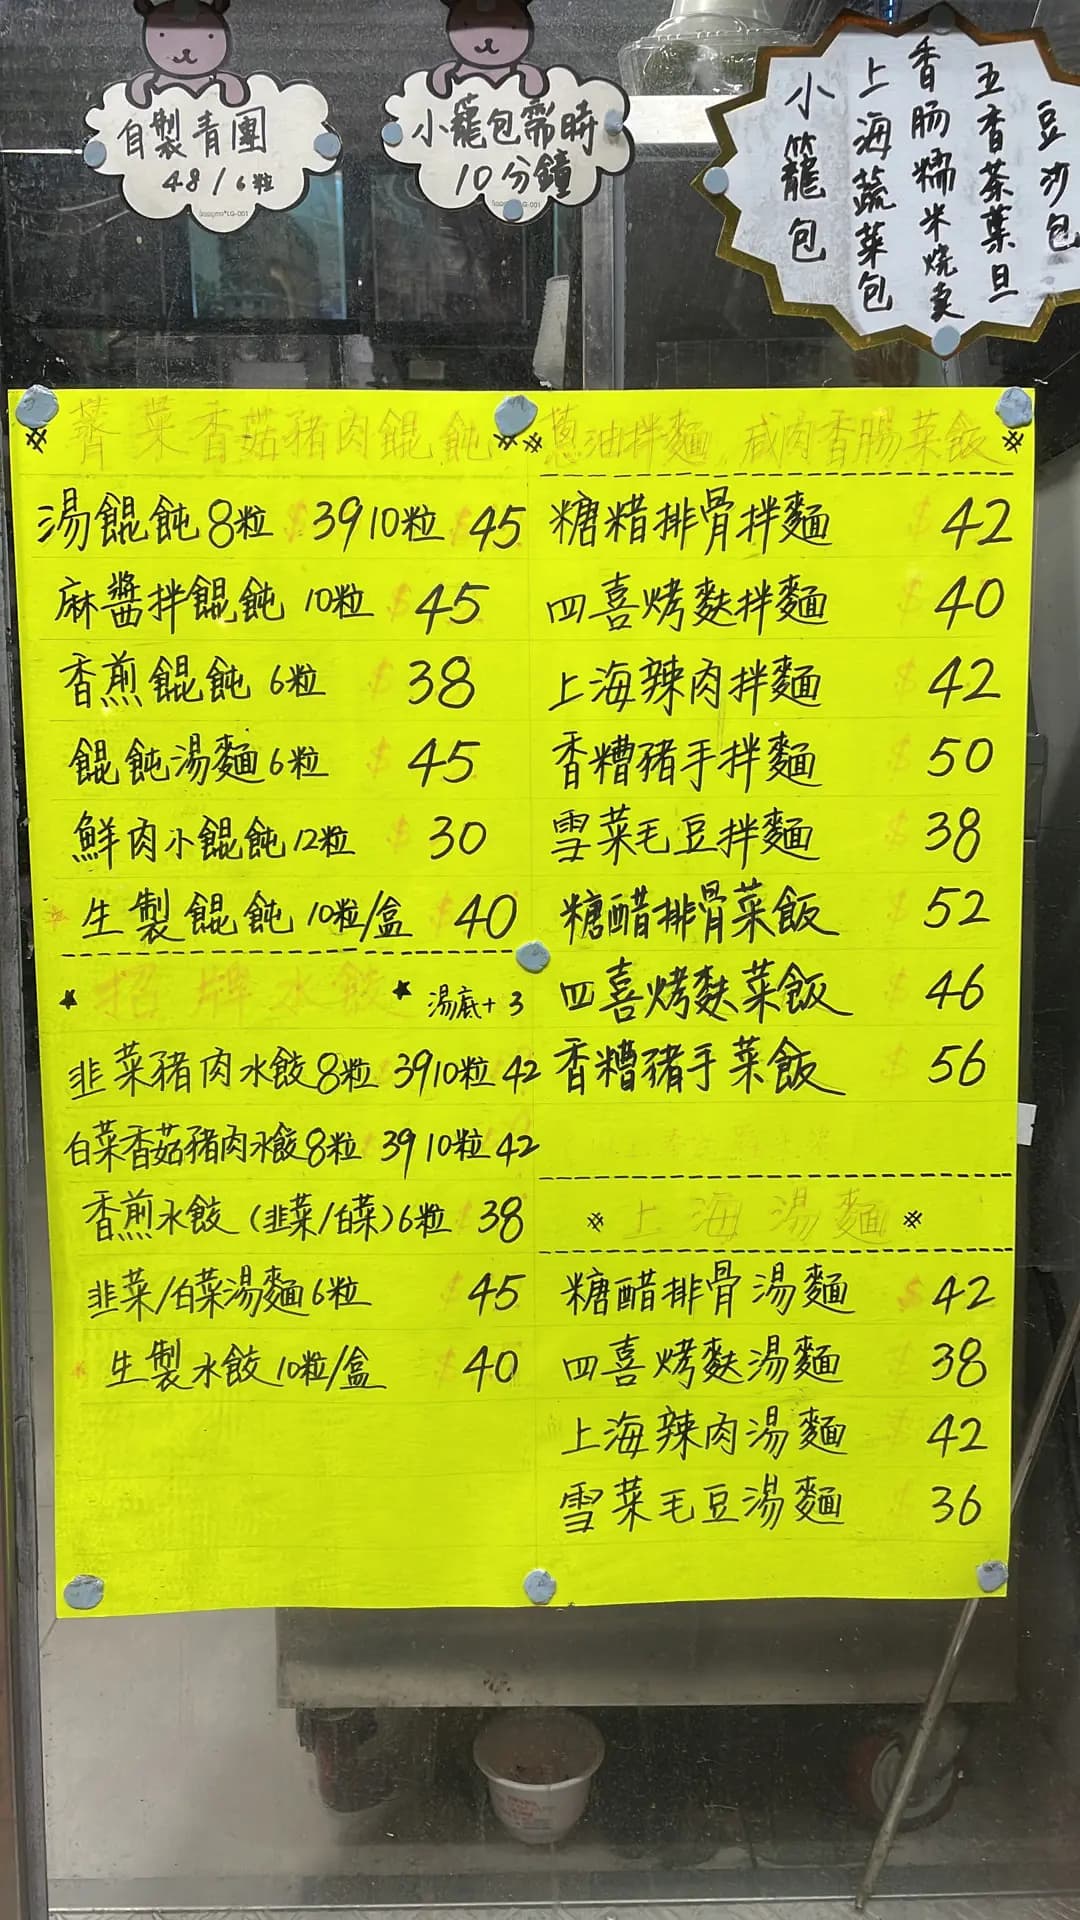 自製青團
48/6粒
小籠包需時
10分鐘
豆沙包
五香茶葉旦
香腸糯米燒卖
上海蔬菜包
小籠包
薺菜香菇豬肉餛飩
湯餛飩8粒 $39 10粒 $45
麻醬拌餛飩 10粒 $45
香煎餛飩 6粒 $38
餛飩湯麵6粒 $45
鮮肉小餛飩12粒 $30
生製餛飩10粒/盒 $40
招牌水餃 湯底+3
韭菜豬肉水餃8粒 39 10粒 42
白菜香菇豬肉水餃8粒 39 10粒 42
香煎水餃(韭菜/白菜)6粒 $38
韭菜/白菜湯麵6粒 $45
生製水餃10粒/盒 $40
蔥油拌麵 咸肉香腸菜飯
糖醋排骨拌麵 $42
四喜烤麩拌麵 $40
上海辣肉拌麵 $42
香糟豬手拌麵 $50
雪菜毛豆拌麵 $38
糖醋排骨菜飯 $52
四喜烤麩菜飯 $46
香糟豬手菜飯 $56
上海湯麵
糖醋排骨湯麵 $42
四喜烤麩湯麵 $38
上海辣肉湯麵 $42
雪菜毛豆湯麵 $36